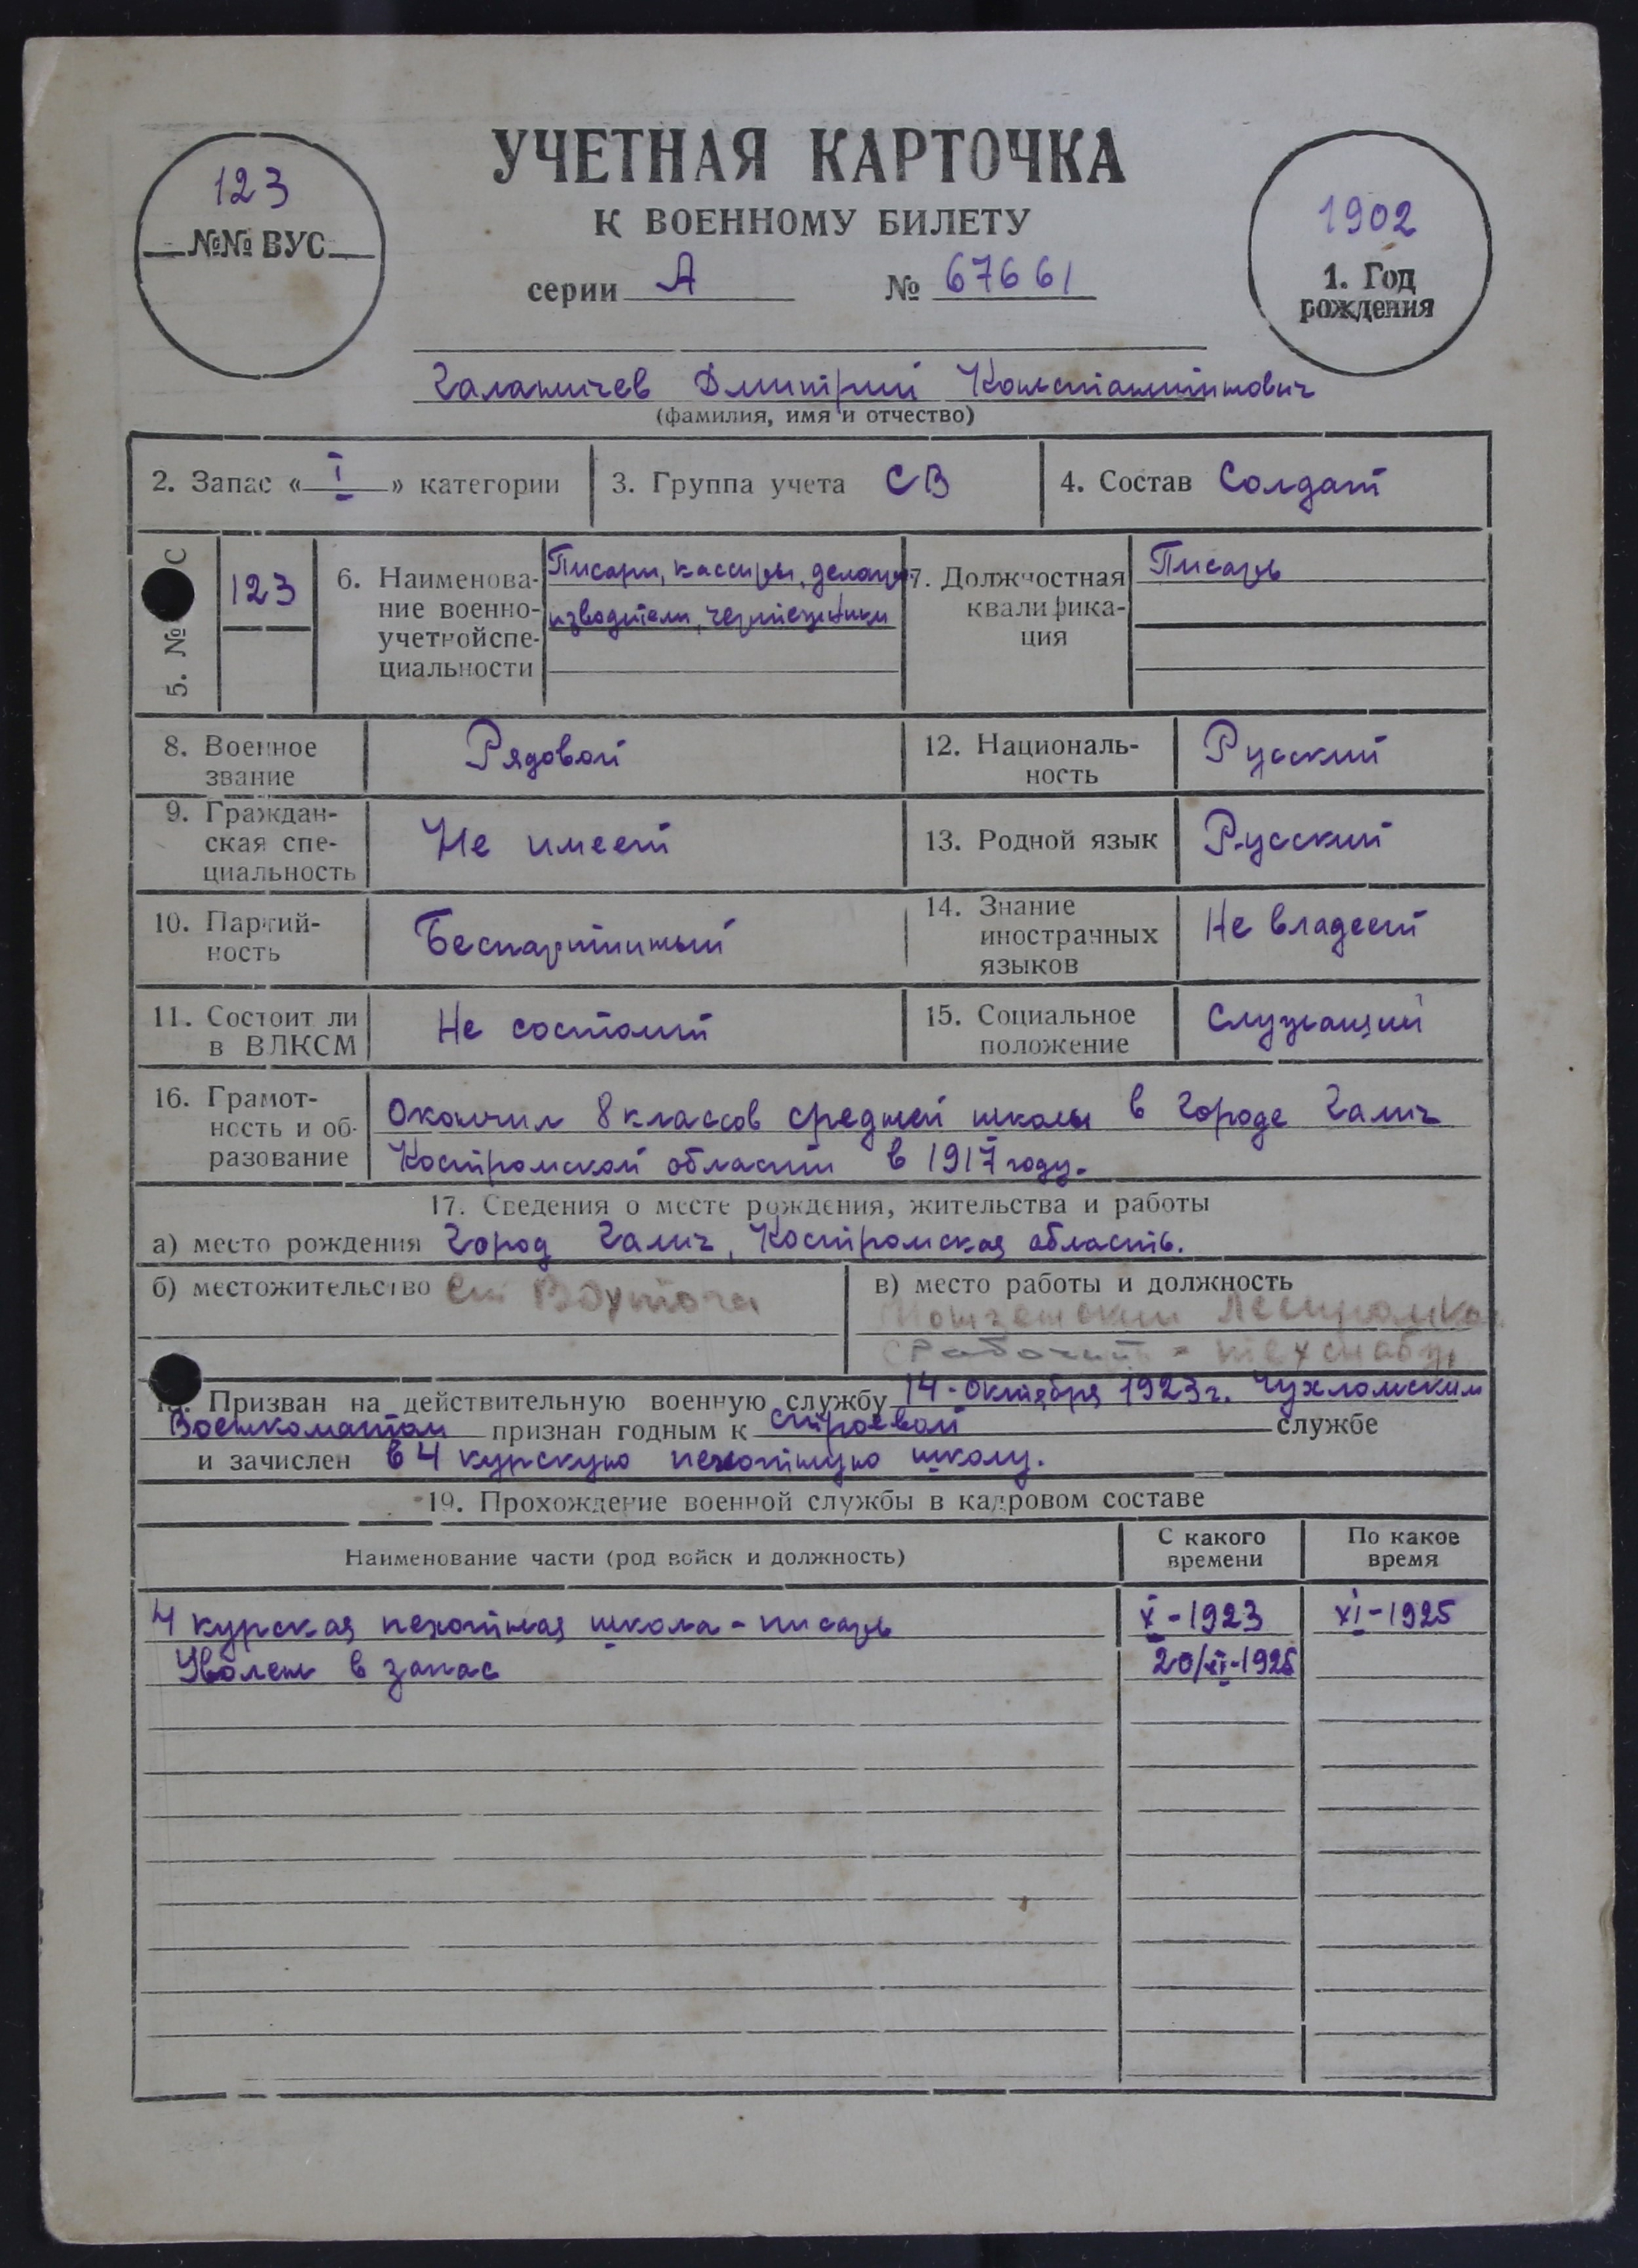 УЧЕТНАЯ КАРТОЧКА
К ВОЕННОМУ БИЛЕТУ
серии А № 67661
123
№№ ВУС
1902
1. Год
рождения
Галаничев Дмитрий Константинович
(фамилия, имя и отчество)
2. Запас « I » категории
3. Группа учета СВ
4. Состав Солдат
5. № С
123
6. Наименова-
ние военно-
учетной спе-
циальности
Писари, кассиры, делопро
изводители, чертежники
7. Должностная
квалифика-
ция
Писарь
8. Военное
звание
Рядовой
12. Националь-
ность
Русский
9. Граждан-
ская спе-
циальность
Не имеет
13. Родной язык
Русский
10. Партий-
ность
Беспартийный
14. Знание
иностранных
языков
Не владеет
11. Состоит ли
в ВЛКСМ
Не состоит
15. Социальное
положение
Служащий
16. Грамот-
ность и об-
разование
Окончил 8 классов средней школы в городе Галич
Костромской области в 1917 году.
17. Сведения о месте рождения, жительства и работы
а) место рождения Город Галич, Костромская область.
б) местожительство
в) место работы и должность
Рабочий
18. Призван на действительную военную службу 14-октября 1923 г. Чухломским
Военкоматом признан годным к строевой службе
и зачислен в 4 курскую пехотную школу.
19. Прохождение военной службы в кадровом составе
Наименование части (род войск и должность)
С какого
времени
По какое
время
4 курская пехотная школа - писарь X-1923 XI-1925
Уволен в запас 20/XI-1925